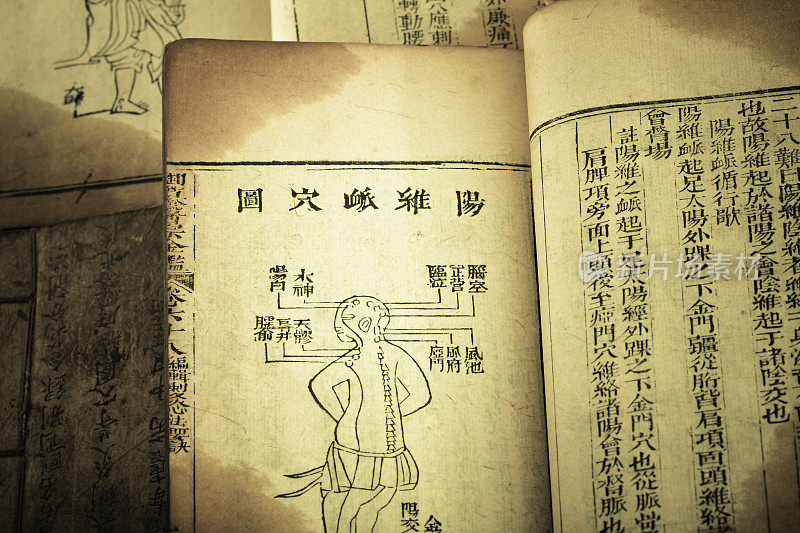 轉動腰
穴應刺
外廉痛
陽維衇穴圖
腦空
正營
臨泣
本神
陽白
風池
風府
瘂門
天髎
肩井
臑俞
陽交
金
編輯刺灸心法要訣
二十八難曰陽維陰維者維絡于身
也故陽維起於諸陽之會陰維起于諸陰之交也
陽維衇循行歌
陽維衇起足太陽外踝之下金門疆從胻背肩項面頭維絡
會督場
註陽維之衇起于太陽經外踝之下金門穴也從胻背
肩胛項旁面上頭後至瘂門穴維絡諸陽會於督脈也
新片场